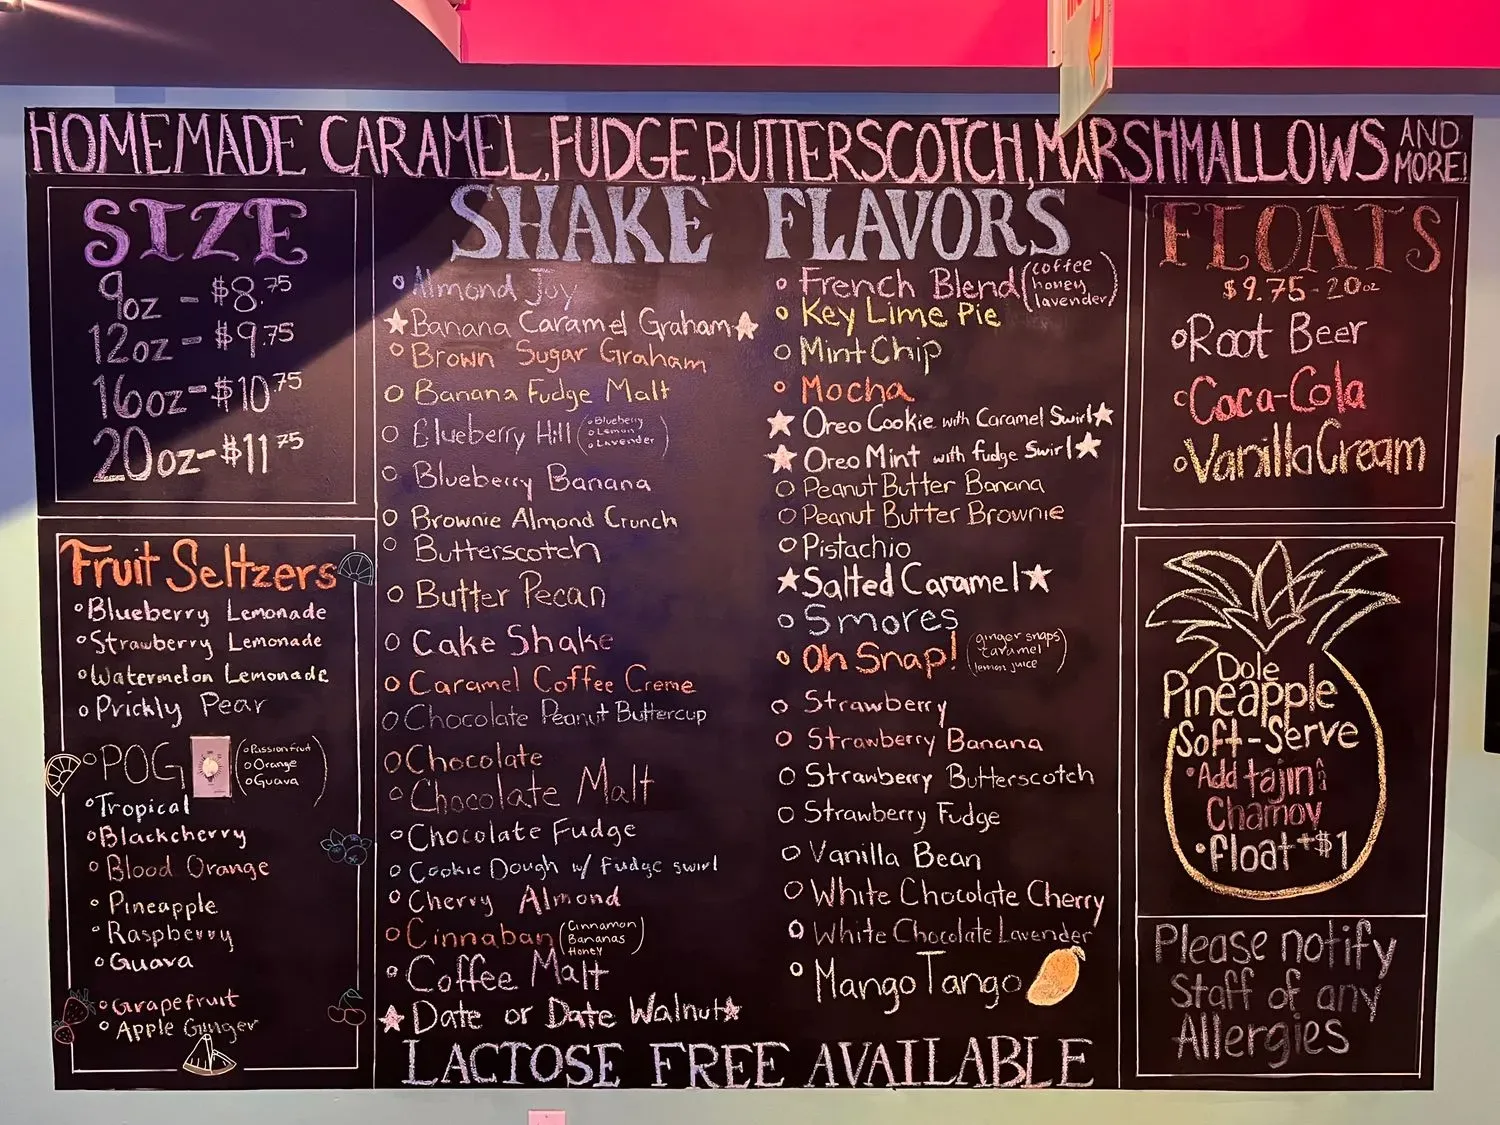 HOMEMADE CARAMEL, FUDGE, BUTTERSCOTCH, MARSHMALLOWS AND MORE!
SIZE
9oz - $8.75
12oz - $9.75
16oz - $10.75
20oz - $11.75
Fruit Seltzers
Blueberry Lemonade
Strawberry Lemonade
Watermelon Lemonade
Prickly Pear
POG (Passionfruit
Orange
Guava)
Tropical
Blackcherry
Blood Orange
Pineapple
Raspberry
Guava
Grapefruit
Apple Ginger
SHAKE FLAVORS
Almond Joy
Banana Caramel Graham
Brown Sugar Graham
Banana Fudge Malt
Blueberry Hill (Blueberry
Lemon
Lavender)
Blueberry Banana
Brownie Almond Crunch
Butterscotch
Butter Pecan
Cake Shake
Caramel Coffee Creme
Chocolate Peanut Buttercup
Chocolate
Chocolate Malt
Chocolate Fudge
Cookie Dough w/ Fudge swirl
Cherry Almond
Cinnaban (Cinnamon
Bananas
Honey)
Coffee Malt
Date or Date Walnut
French Blend (coffee
honey
lavender)
Key Lime Pie
Mint Chip
Mocha
Oreo Cookie with Caramel Swirl
Oreo Mint with fudge Swirl
Peanut Butter Banana
Peanut Butter Brownie
Pistachio
Salted Caramel
Smores
Oh Snap! (ginger snaps
caramel
lemon juice)
Strawberry
Strawberry Banana
Strawberry Butterscotch
Strawberry Fudge
Vanilla Bean
White Chocolate Cherry
White Chocolate Lavender
Mango Tango
LACTOSE FREE AVAILABLE
FLOATS
$9.75 - 20oz
Root Beer
Coca-Cola
Vanilla Cream
Dole
Pineapple
Soft-Serve
Add tajin
Chamoy
Float +$1
Please notify
Staff of any
Allergies